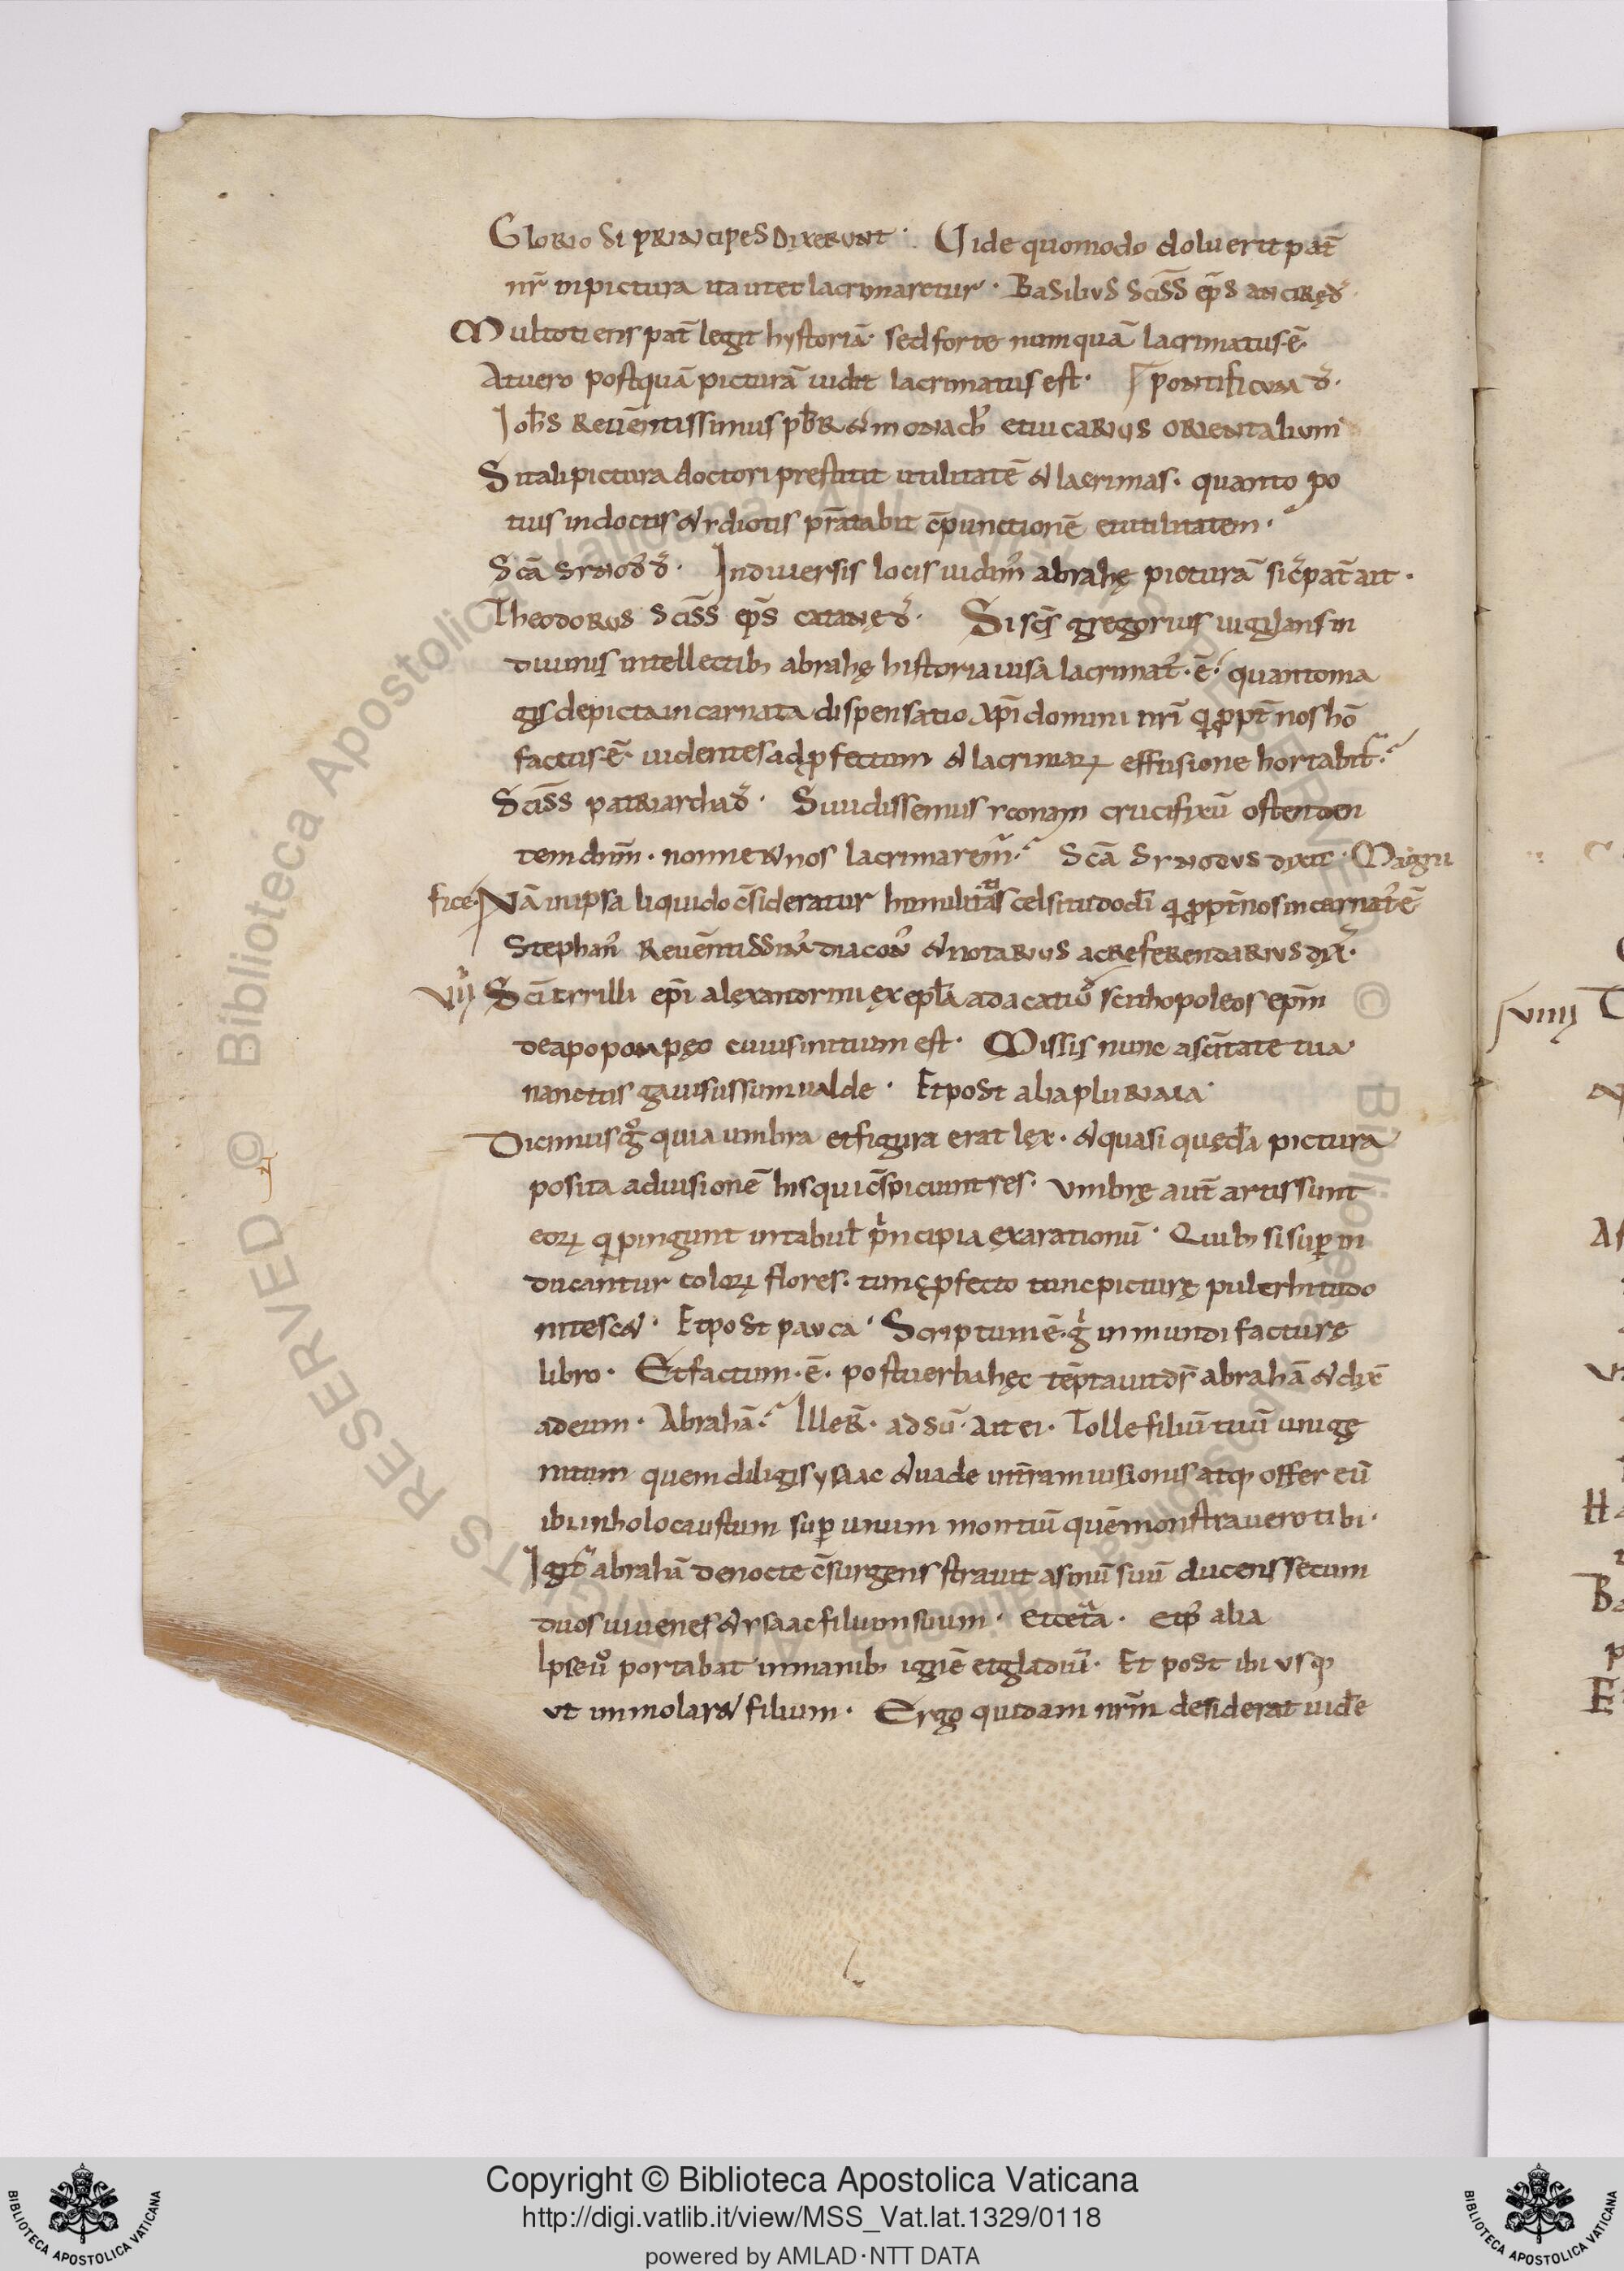 Glorio si principes dixerunt · Uide quomodo doluerit pat̄
nr̄ in pictura ita utet lacrimaretur · Basilius sciss̄ ep̄s ancirę d̄ ·
Multotiens pat̄ legit hystoriā · sed forte numquā lacrimatus · ē ·
At uero postquā picturā uidit lacrimatus est · pontificum d̄ ·
Ioh̄s reuēntissimus pb̄r & monach' et uicarius orientalium
Si tali pictura doctori prestitit utilitatē & lacrimas · quanto po
tius indoctis & ydiotis p̄statabit c̄punctionē et utilitatem ·
Scā synod' d̄ · In diuersis locis uidim' abrahę picturā sic̄ pat̄ ait ·
Theodorus sciss̄ ep̄s catanę d̄ · Si sc̄s gregorius uigilans in
diuinis intellectib; abrahę historia uisa lacrimat' · ē · quanto ma
gis depicta incarnata dispensatio xp̄i domini nr̄i q ppt̄ nos hō
factus · ē · uidentes ad pfectum & lacrimaꝝ effusione hortabit̄ ·
Sciss̄ patriarcha d̄ · Si uidissemus yconam crucifixū ostenden
tem dnm̄ · nonne & nos lacrimarem' · Scā synodus dixit · Magni
fice · Nā in ipsa liquido c̄sideratur humilitas celsitudo di q ppt̄ nos incarnat' ē
Stephan' reuēntissim' diacon' & notarius ac referendarius dix̄ ·
VII Sci cyrilli ep̄i alexandrini ex epl̄a ad acatiū scithopoleos ep̄m
de apopompęo cuius initium est · Missis nunc a scītate tua
nanctis gauisus sum ualde · Et post alia plurima ·
Dicimus g° quia umbra et figura erat lex · & quasi quęda pictura
posita ad uisionē his qui c̄spiciunt res · Umbrę aut̄ artis sunt
eoꝝ q pingunt in tabul' p̄ncipia exarationū · Quib; si sup in
ducantur coloꝝ flores · tunc pfecto tunc picturę pulcrhitudo
nitesc& · Et post pauca · Scriptum ē · g in mundi facturę
libro · Et factum · ē · post uerba hęc tēptauit ds̄ abrahā & dix̄
ad eum · Abrahā · Ille R̄ · ad sū · Ait ei · Tolle filiū tuū unigę
nitum quem diligis ysaac & uade in tr̄am uisionis atq; offer eū
ibi in holocaustum sup unum montiū quē monstrauero tibi ·
Igit̄ abrahā de nocte c̄surgens strauit asinū suū ducens secum
duos iuuenes & ysaac filium suum · et cet̄a · et p' alia
Ipse u° portabat in manib; ignē et gladiū · Et post ibi usq;
ut immolar& filium · Ergo quidam nr̄m desiderat uide
Copyright © Biblioteca Apostolica Vaticana
http://digi.vatlib.it/view/MSS_Vat.lat.1329/0118
powered by AMLAD·NTT DATA
BIBLIOTECA APOSTOLICA VATICANA
BIBLIOTECA APOSTOLICA VATICANA